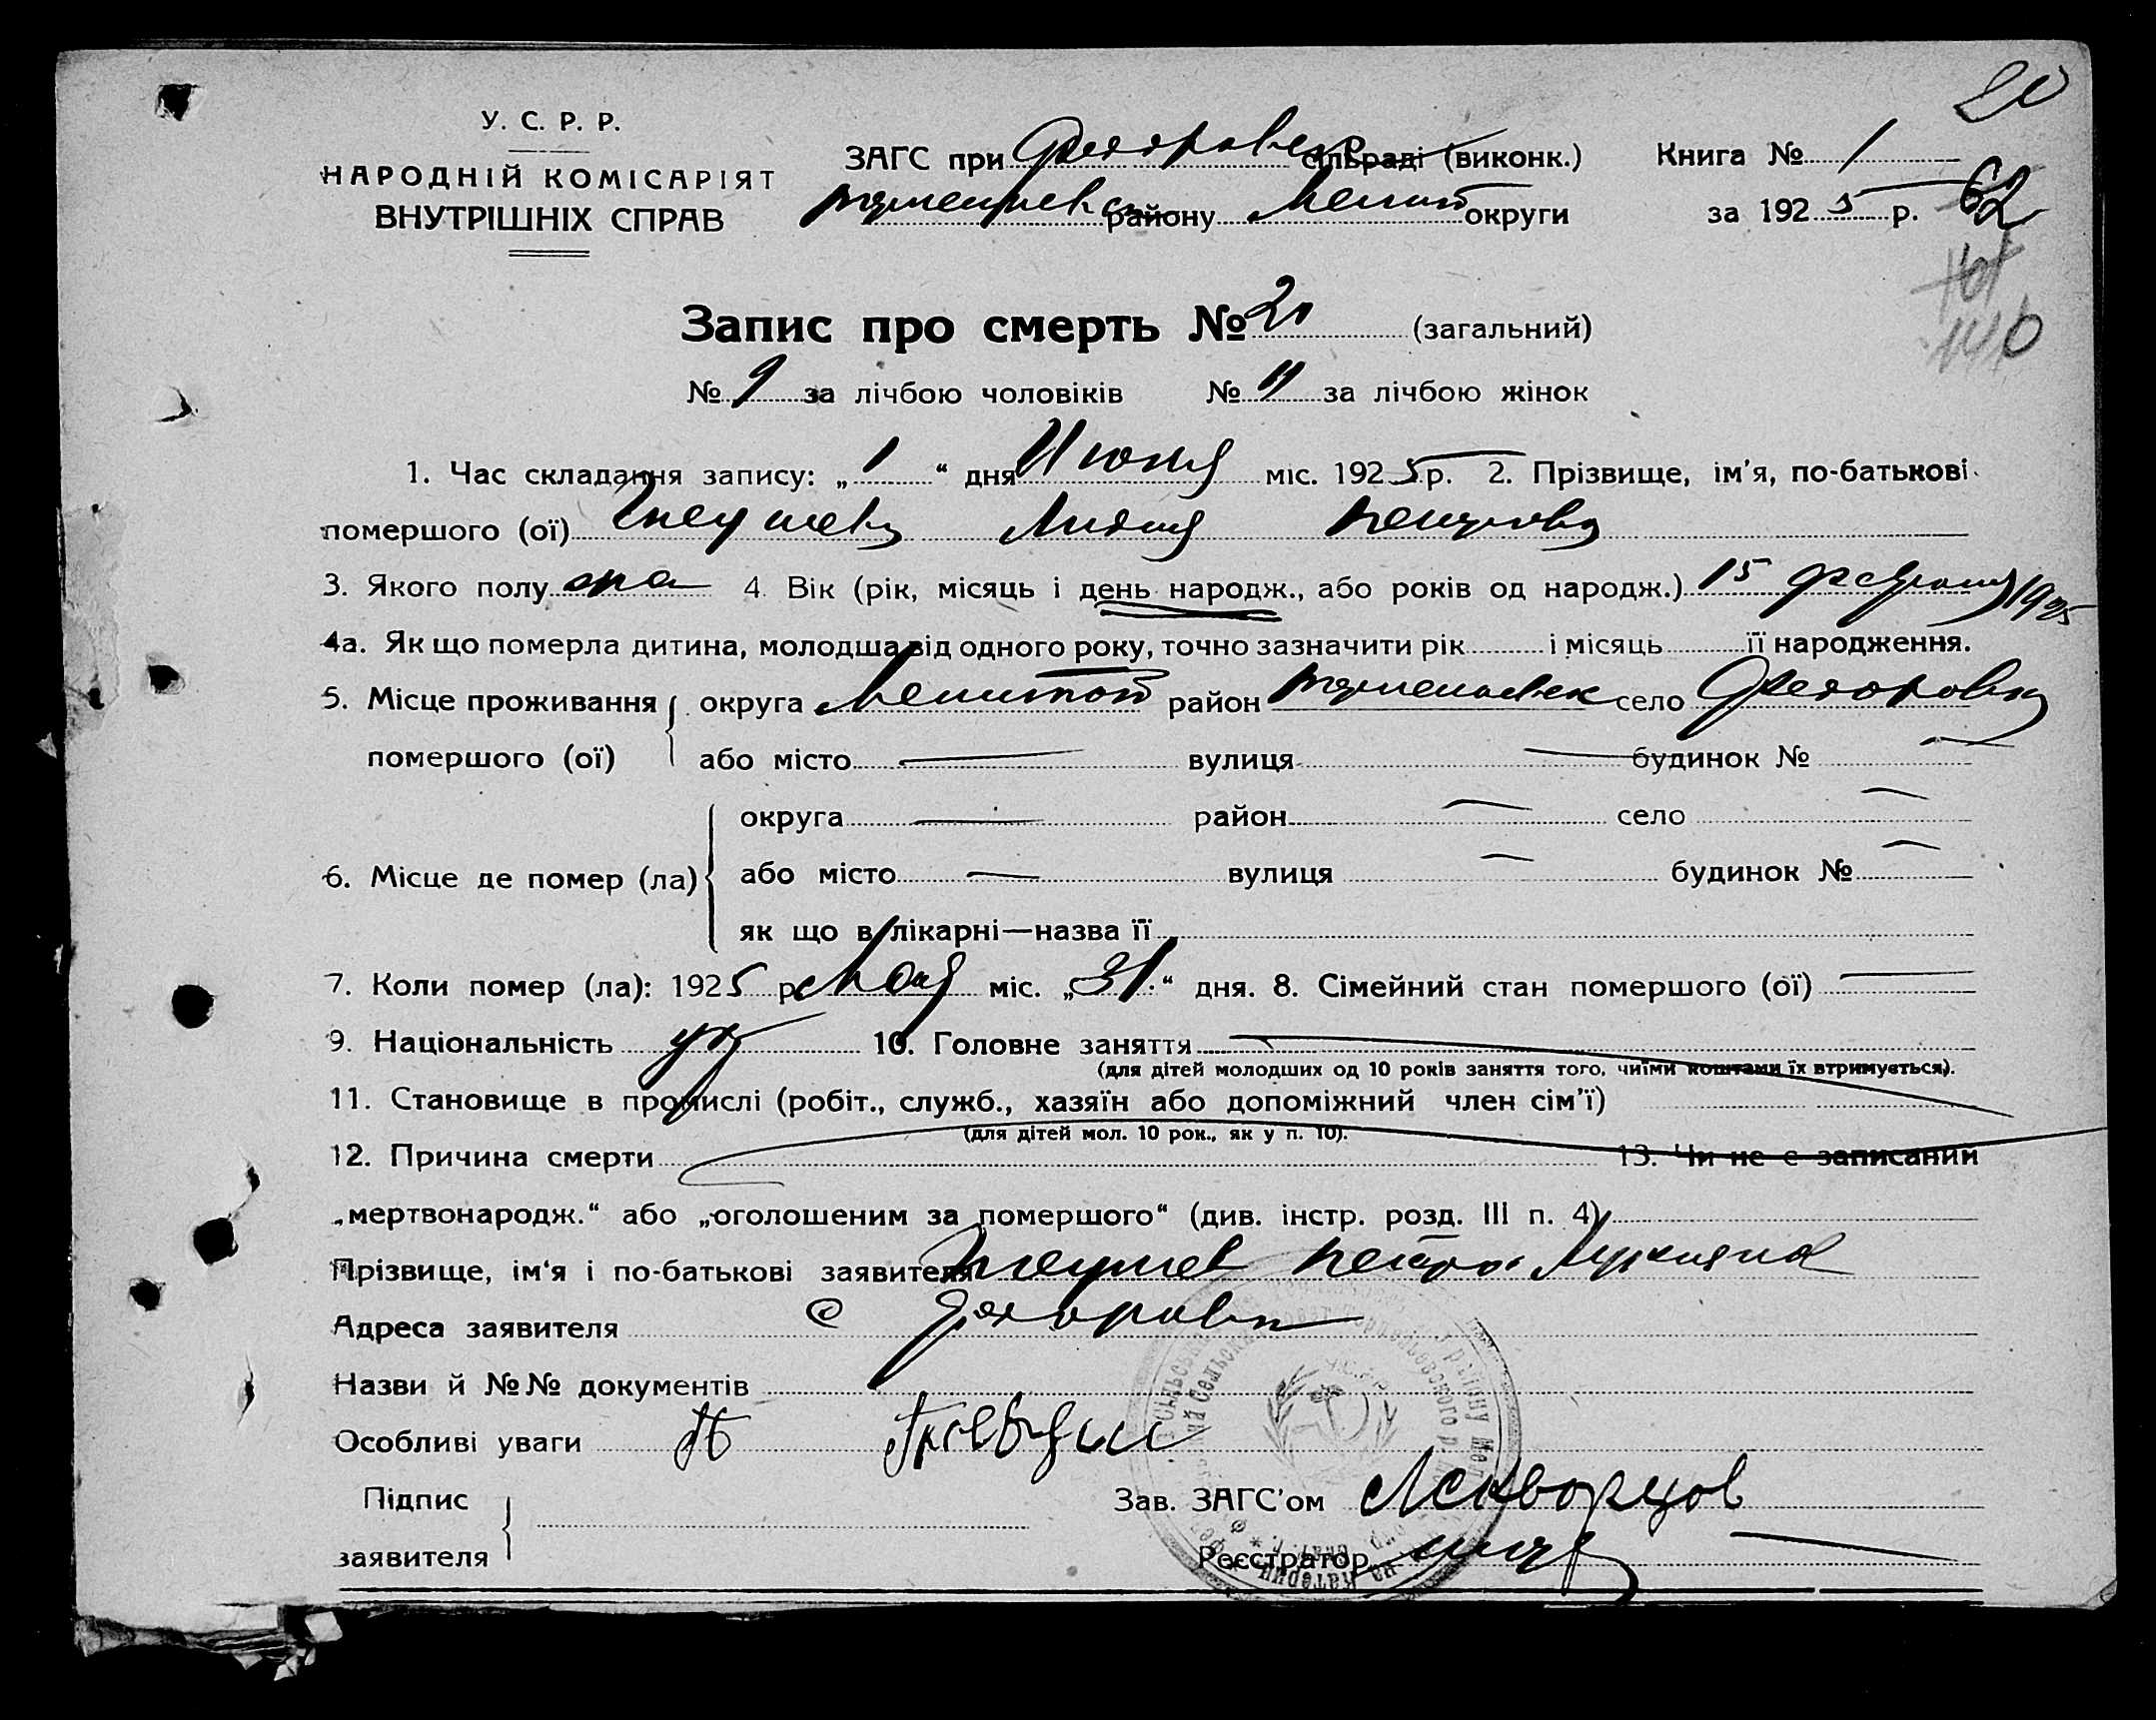 20
У. С. Р. Р.
НАРОДНІЙ КОМІСАРІЯТ
ВНУТРІШНІХ СПРАВ
ЗАГС при сільраді (виконк.)
району Мелит округи
Книга № 1
за 1925 р. 62
Запис про смерть № 20 (загальний)
№ 9 за лічбою чоловіків № 11 за лічбою жінок
1. Час складання запису: „ 1 “ дня Июня міс. 1925 р. 2. Прізвище, ім’я, по-батькові
помершого (ої) Лидия Петровна
3. Якого полу 4. Вік (рік, місяць і день народж., або років од народж.) 15 февраля 1925
4а. Як що померла дитина, молодша від одного року, точно зазначити рік і місяць її народження.
5. Місце проживання округа Мелитоп район село Федоровка
помершого (ої) або місто — вулиця — будинок № —
округа — район — село —
6. Місце де помер (ла) або місто — вулиця — будинок № —
як що в лікарні—назва її
7. Коли помер (ла): 1925 р. Мая міс. „31.“ дня. 8. Сімейний стан помершого (ої) —
9. Національність укр 10. Головне заняття
(для дітей молодших од 10 років заняття того, чиїми коштами їх втримується).
11. Становище в промислі (робіт., служб., хазяїн або допоміжний член сім’ї)
(для дітей мол. 10 рок., як у п. 10).
12. Причина смерти 13. Чи не є записаний
„мертвонародж.“ або „оголошеним за помершого“ (див. інстр. розд. III п. 4)
Прізвище, ім‘я і по-батькові заявителя Петро
Адреса заявителя с Федоровка
Назви й №№ документів
Особливі уваги
Підпис
заявителя
Зав. ЗАГС’ом Скворцов
Реєстратор